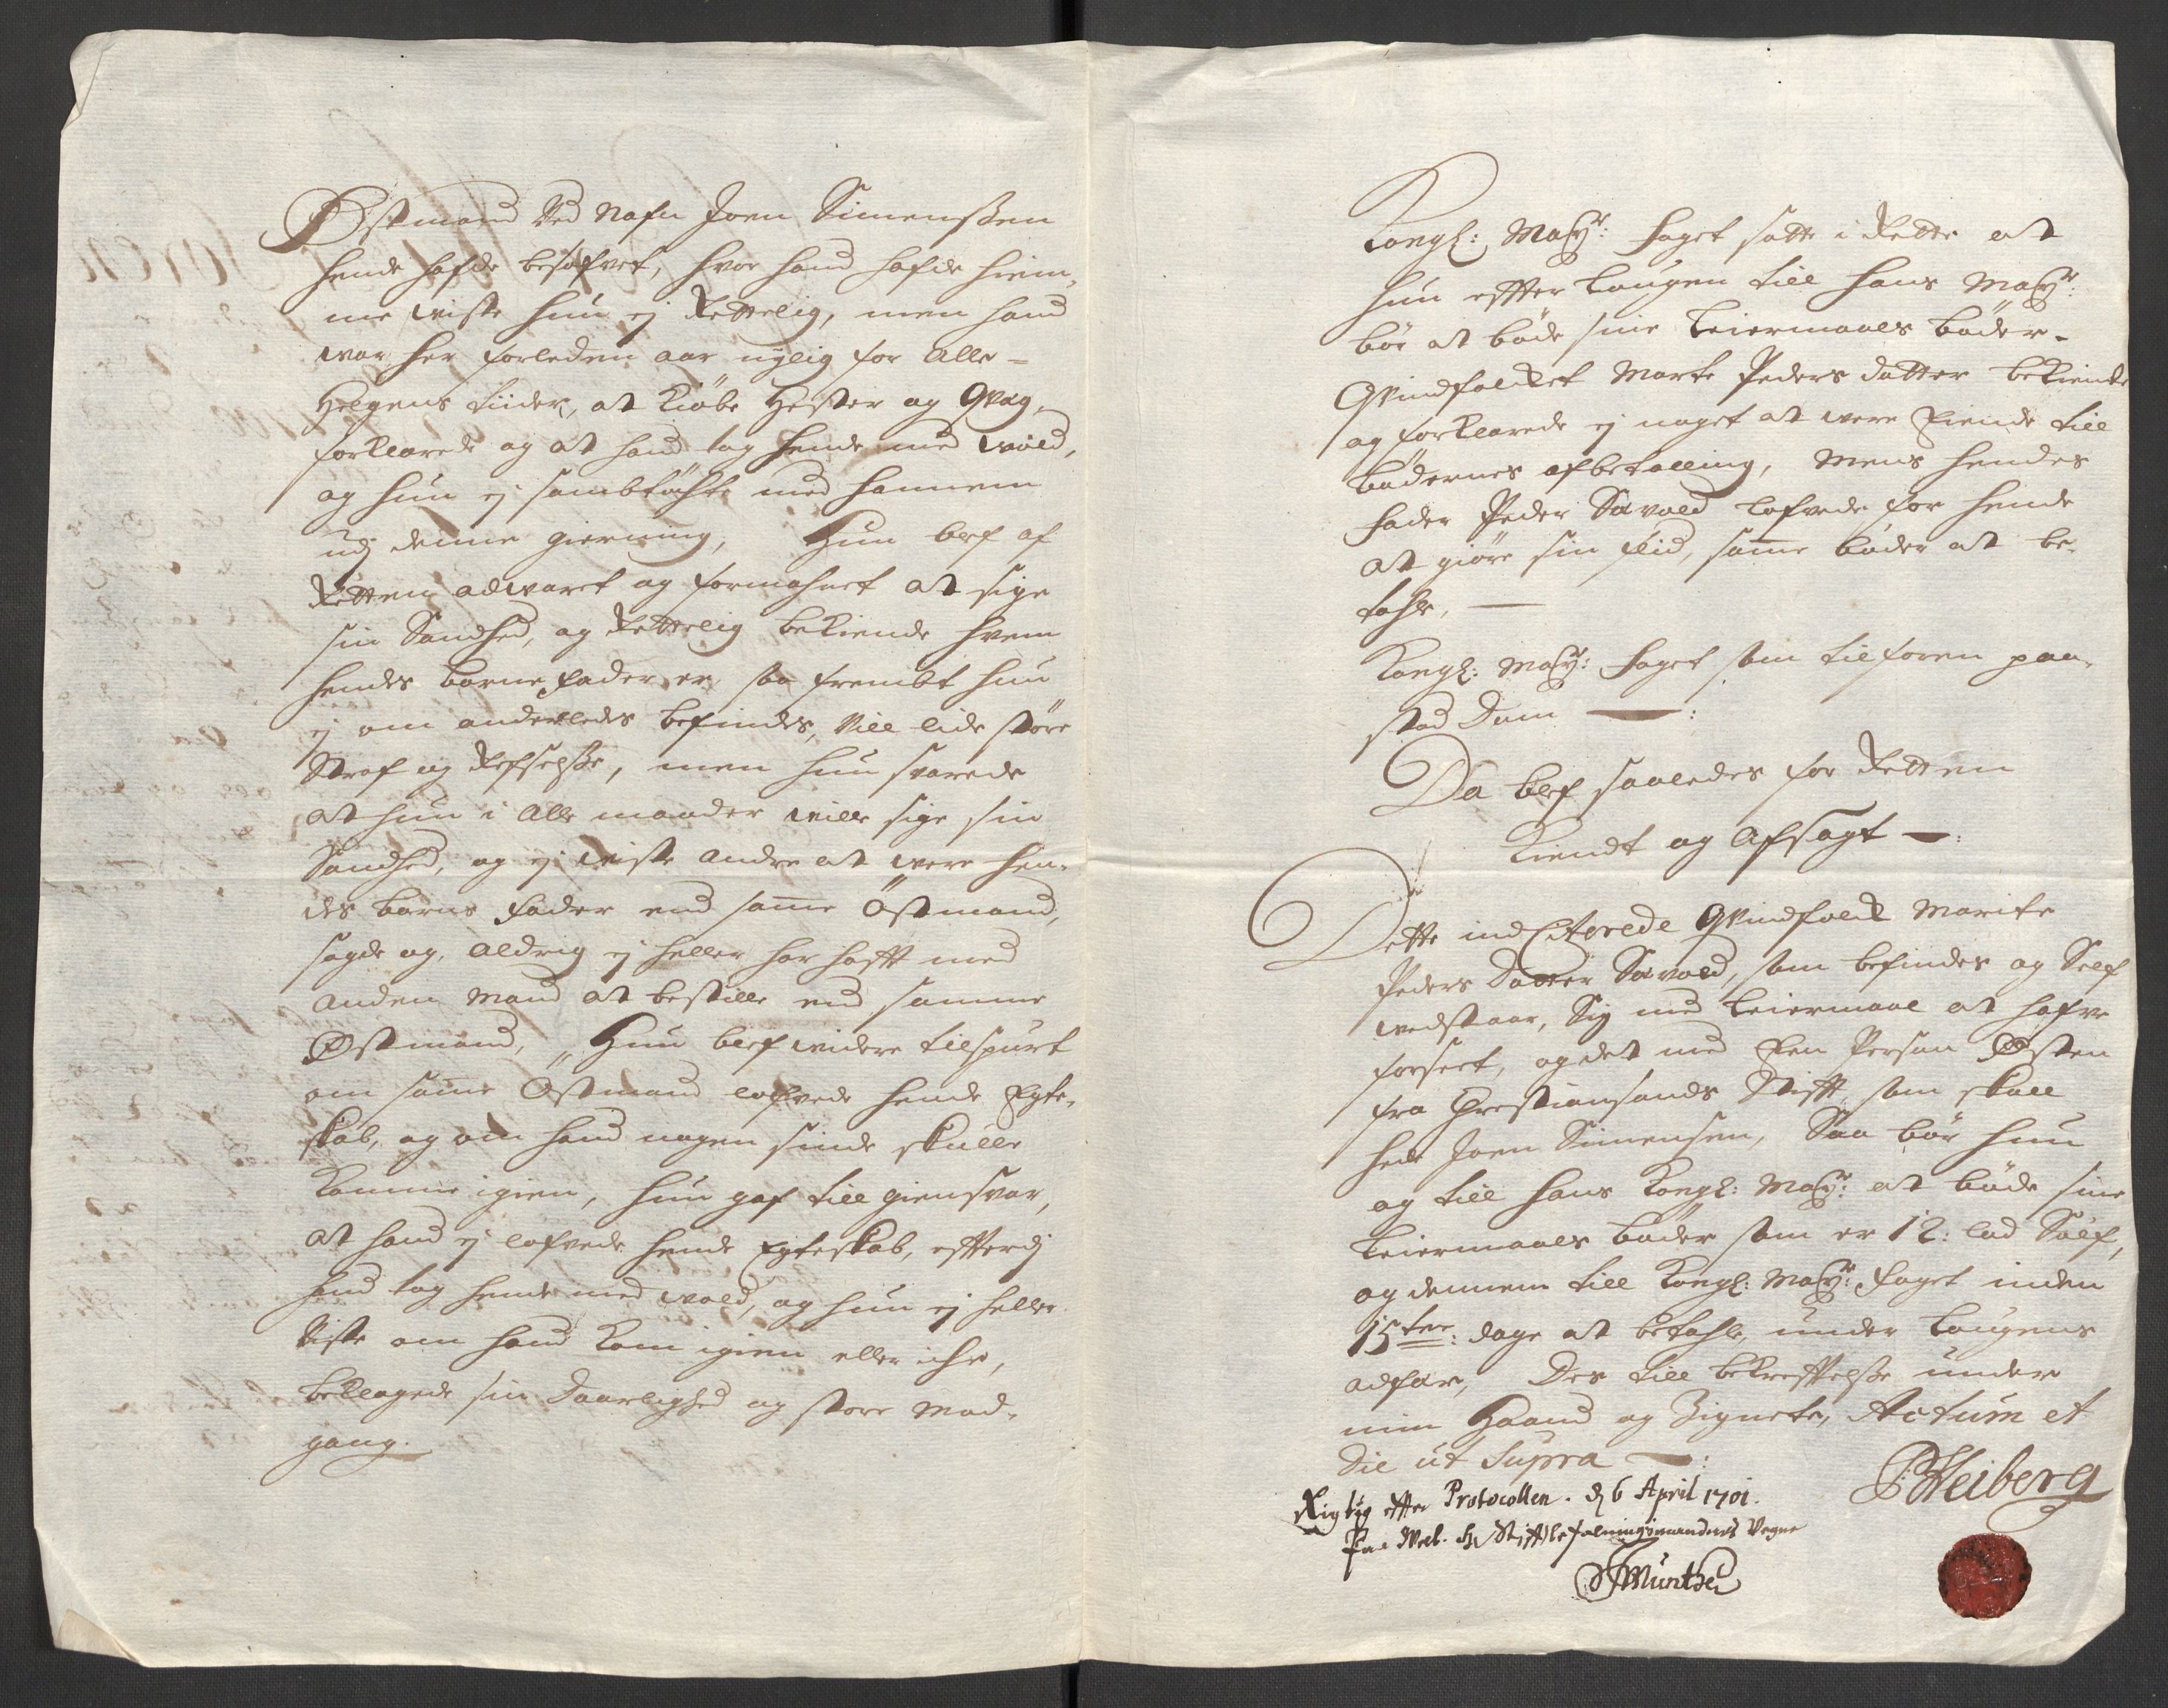 Østmand Ved Nafn Joen Simenssen
hende hafde besofvet, hvor hand hafde hiem-
me wiste hun ej Rettelig, men hand
war her forleden aar nylig for Alle-
Helgens tiider, at Kiøbe Hester og Qvæg,
forklarede og at hand tog hende med wold,
og hun ej sambtøchte med hannem
udj denne gierning, Hun blef af
Retten adwaret og formahnet at sige
sin Sandhed, og Rettelig bekiende hvem
hendes barnefader er, saa frembt hun
ej om anderledes befindes, Vill lide støre
Straf og Refselsse, men hun svarede
at hun i Alle maader wille sige sin
Sandhed, og ej wiste Andre at were hen-
des barns fader end same Østmand,
sagde og, Aldrig ej heller har hafft med
Anden Mand at bestille end samme
Østmand, Hun blef widere tilspurt
om same Østmand lofvede hende Egte-
skab, og om hand nogen sinde skulle
komme igien, hun gaf till giensvar,
at hand ej lofvede hende Egteskab, efterdj
hand tog hende med wold, og hun ej heller
Viste om hand kom igien eller iche,
beklagede sin Daarlighed og store Mod-
gang.
Kongl: May:ts foget satte i Rette at
hun effter Lougen till Hans May:t
bør at bøde sine Leiermaals bøder.
Qvindfolcket Marte Peders datter bekiente
og forklarede ej noget at were Eiende till
bødernes afbetalling, Mens hendes
fader Peder Sævold lofvede for hende
at giøre sin flid, same bøder at be-
tahle, —
Kongl: May:ts foget som tilforen paa-
stod Dom —:
Da blef saaledes for Retten
Kiendt og Afsagt —:
Dette ind Citerede Qvindfolck Marite
Peders Datter Sævold, som befindes og Self
wedstaar, Sig med Leiermaal at hafve
forseet, og det med Een Person Østen
fra Christiansands Stifft, som skall
hede Joen Simensen, Saa bør hun
og till Hans Kongl: May:t at bøde sine
Leiermaals bøder som er 12: lod Sølf,
og dennem till Kongl: May:ts foget inden
15ten: dage at betahle, under Lougens
adfær, Des till bekrefftelsse under
min Haand og Zignete, Actum et
Die ut Supra —:
PHeiberg
Rigtig effter Protocollen. d 6 April 1701.
Paa Welb. Hr Stifftbefalningsmandens Vegne
Müntzer